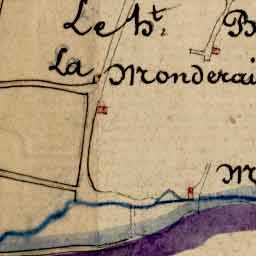 Le ht. B
La Monderai
M